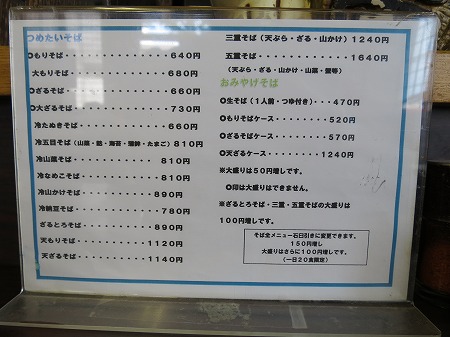 つめたいそば
Oもりそば・・・・・・・・・・640円
大もりそば・・・・・・・・・680円
Oざるそば・・・・・・・・・・660円
O大ざるそば・・・・・・・・・730円
冷たぬきそば・・・・・・・・660円
冷五目そば(山菜・

・海苔・

・たまご)810円
冷山菜そば・・・・・・・・・810円
冷なめこそば・・・・・・・・810円
冷山かけそば・・・・・・・・890円
冷納豆そば・・・・・・・・・780円
ざるとろそば・・・・・・・・890円
天もりそば・・・・・・・・・1120円
天ざるそば・・・・・・・・・1140円
三重そば(天ぷら・ざる・山かけ)1240円
五重そば・・・・・・・・・・1640円
(天ぷら・ざる・山かけ・山菜・

)
おみやげそば
O生そば(1人前・つゆ付き)・・・470円
Oもりそばケース・・・・・・・520円
Oざるそばケース・・・・・・・570円
O天ざるケース・・・・・・・・1240円
※大盛りは50円増しです。
O印は大盛りはできません。
※ざるとろそば・三重・五重そばの大盛りは
100円増しです。
そば全メニュー石臼引きに変更できます。
150円増し
大盛りはさらに100円増しです。
(一日20食限定)